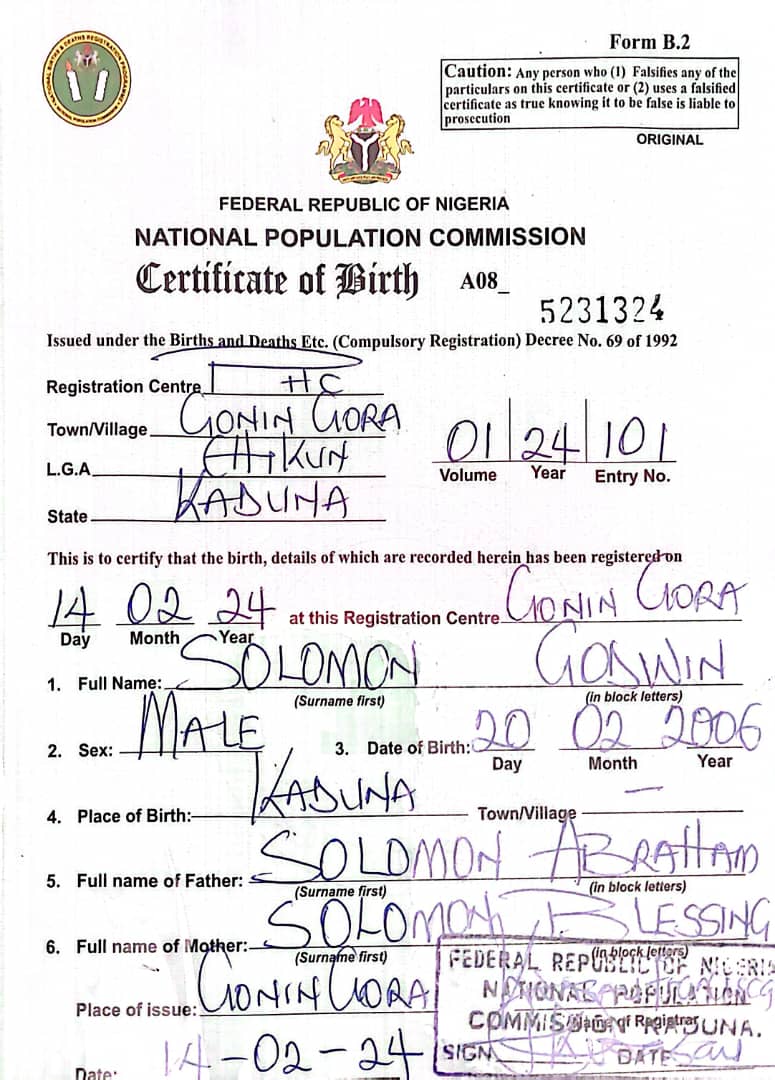 Form B.2
Caution: Any person who (1) Falsifies any of the
particulars on this certificate or (2) uses a falsified
certificate as true knowing it to be false is liable to
prosecution
ORIGINAL
FEDERAL REPUBLIC OF NIGERIA
NATIONAL POPULATION COMMISSION
Certificate of Birth A08_
5231324
Issued under the Births and Deaths Etc. (Compulsory Registration) Decree No. 69 of 1992
Registration Centre HC
Town/Village GONIN GORA
L.G.A CHIKUN
State KADUNA
01 24 101
Volume Year Entry No.
This is to certify that the birth, details of which are recorded herein has been registered on
14 02 24 at this Registration Centre GONIN GORA
Day Month Year
1. Full Name: SOLOMON GODWIN
(Surname first) (in block letters)
2. Sex: MALE 3. Date of Birth: 20 02 2006
Day Month Year
4. Place of Birth: KADUNA Town/Village —
5. Full name of Father: SOLOMON ABRAHAM
(Surname first) (in block letters)
6. Full name of Mother: SOLOMON BLESSING
(Surname first) (in block letters)
Place of issue: GONIN GORA
Name of Registrar
Date: 14-02-24
FEDERAL REPUBLIC OF NIGERIA
NATIONAL POPULATION
COMMISSION KADUNA.
SIGN DATE